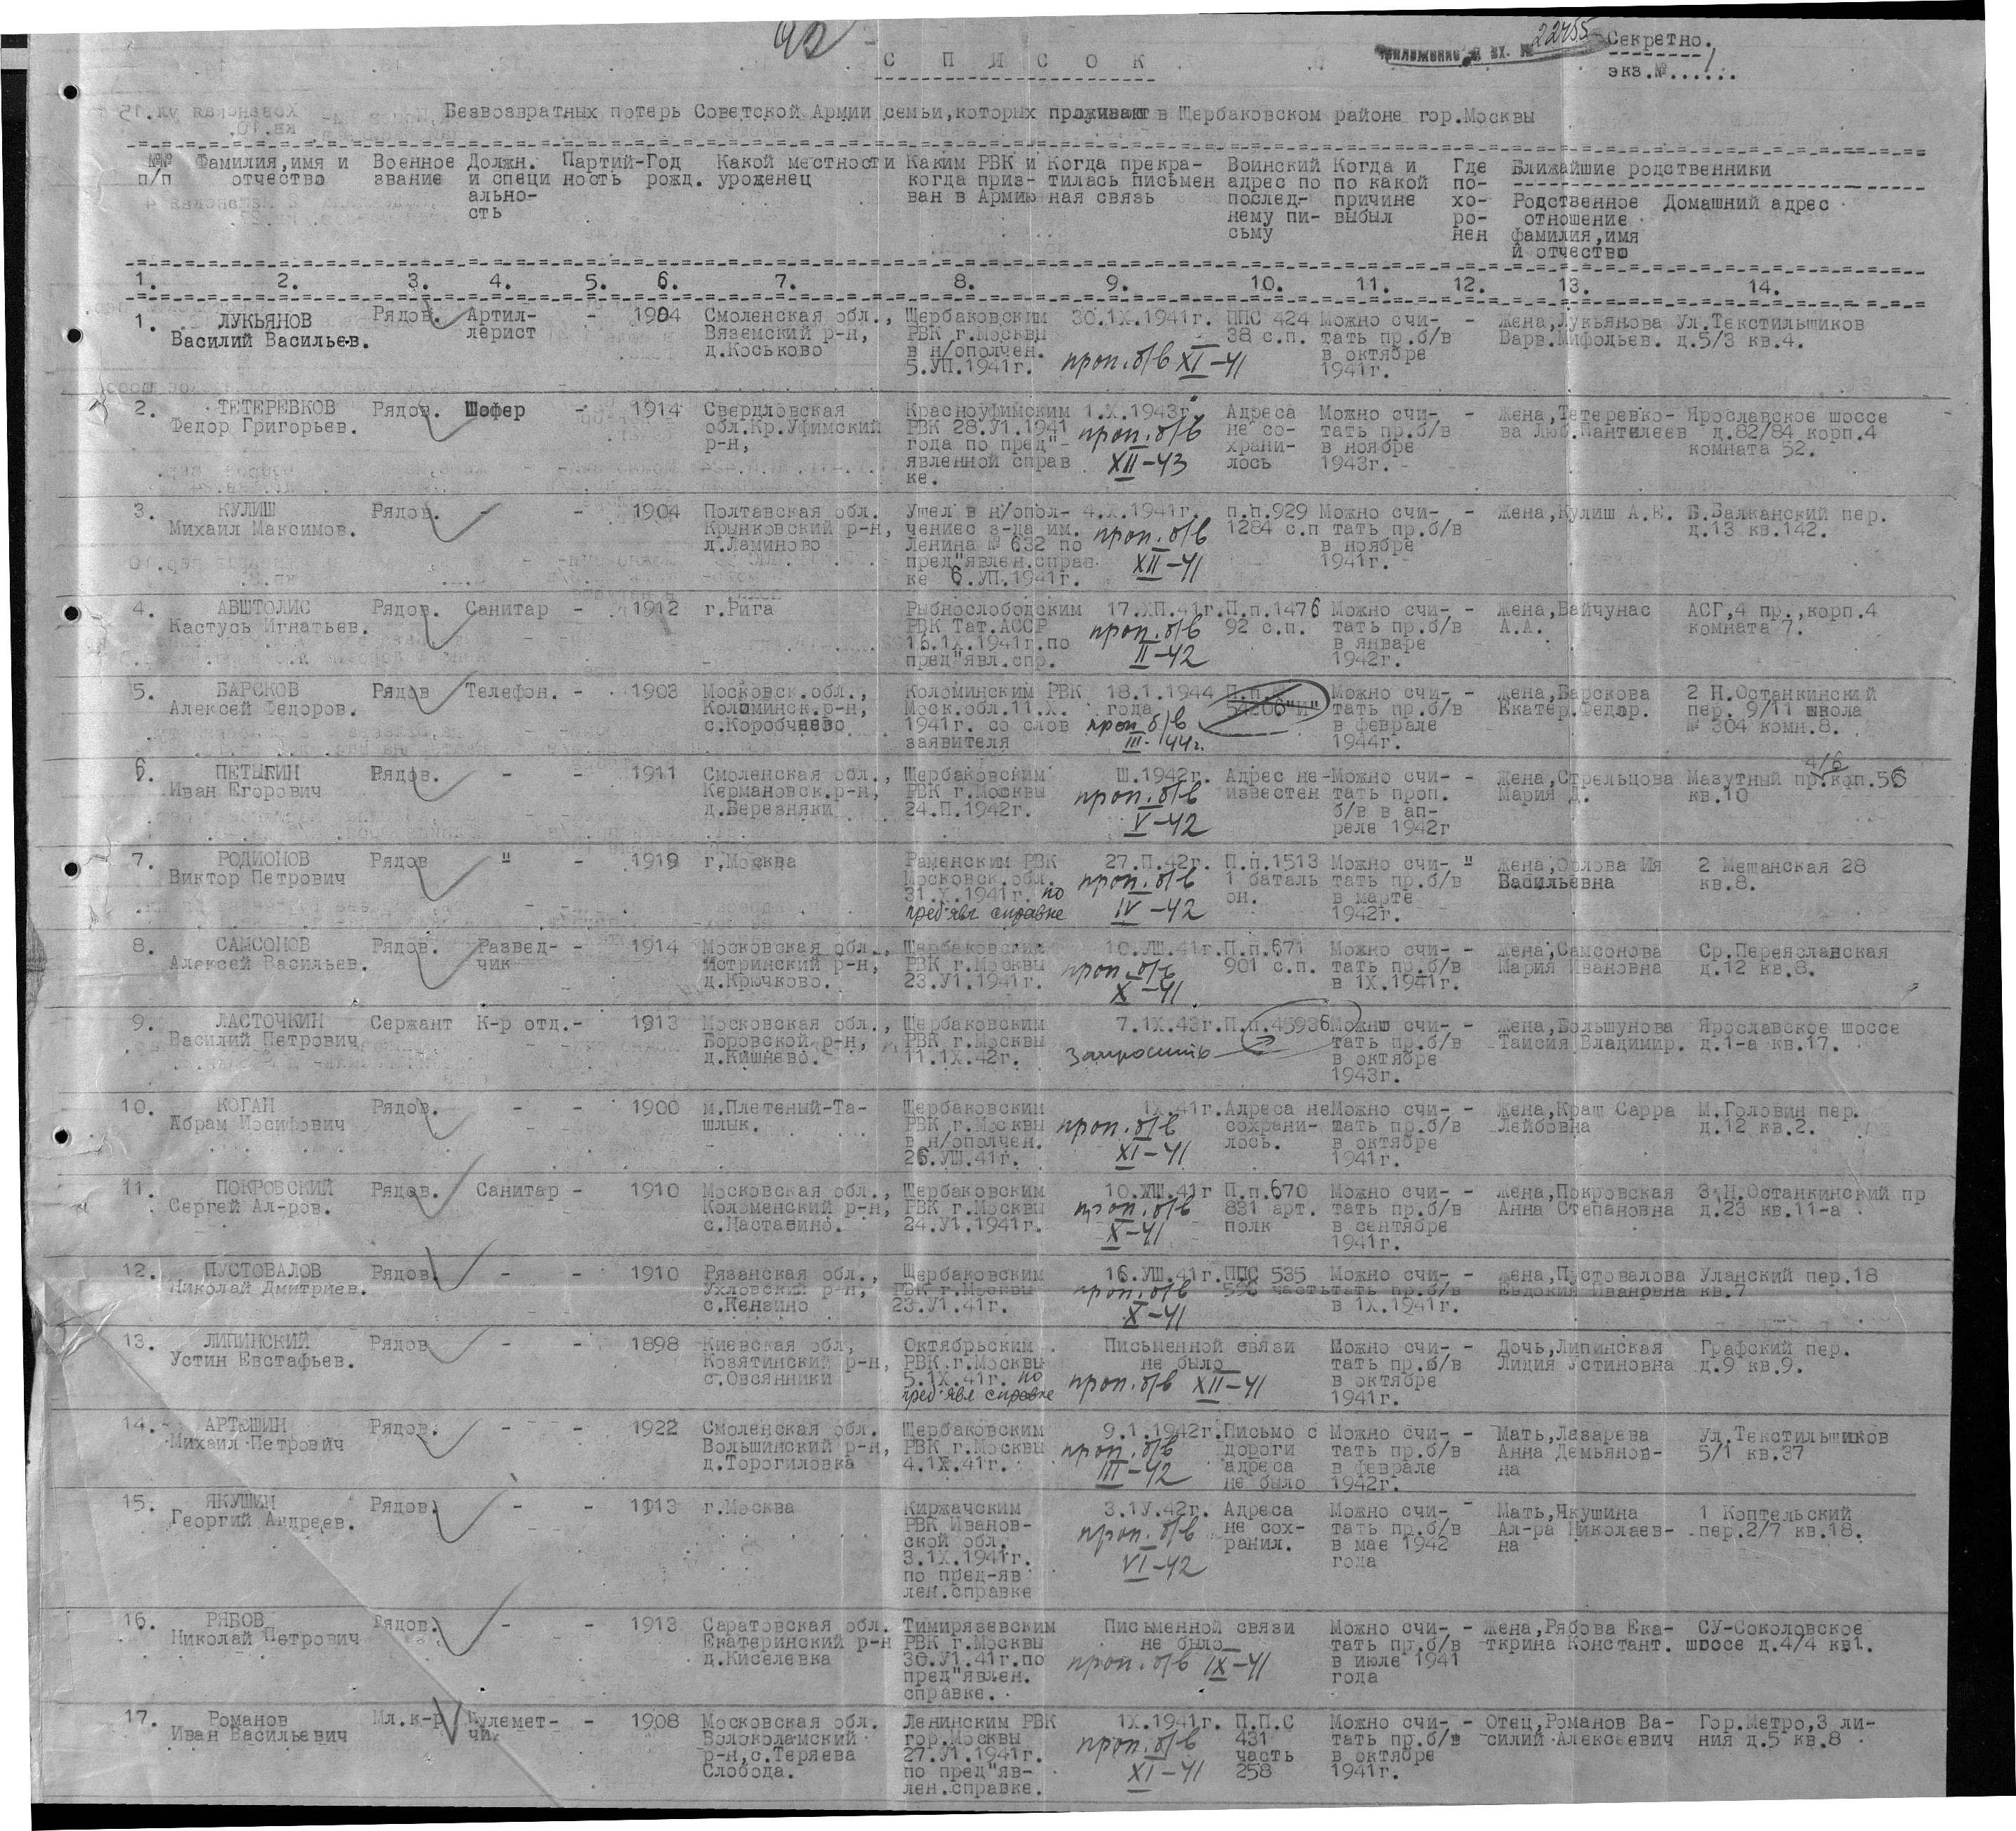 92
С П И С О К
Приложение к вх. № 22455
Секретно.
экз.№ 1
Безвозвратных потерь Советской Армии семьи, которых проживают в Щербаковском районе гор.Москвы
№№ п/п Фамилия,имя и отчество Военное звание Должн. и специальность Партийность Год рожд. Какой местности уроженец Каким РВК и когда призван в Армию Когда прекратилась письменная связь Воинский адрес по последнему письму Когда и по какой причине выбыл Где похоронен Ближайшие родственники
Родственное отношение фамилия,имя и отчество Домашний адрес
1. 2. 3. 4. 5. 6. 7. 8. 9. 10. 11. 12. 13. 14.
1. ЛУКЬЯНОВ Рядов. Артил- - 1904 Смоленская обл., Щербаковским 30.1X.1941г. ППС 424 Можно счи- - Жена,Лукьянова Ул.Текстильщиков
Василий Васильев. лерист Вяземский р-н, РВК г.Москвы 38 с.п. тать пр.б/в Варв.Мифодьев. д.5/3 кв.4.
д.Коськово в н/ополчен. в октябре
5.УП.1941г. проп.б/в XI-41 1941г.
2. ТЕТЕРЕВКОВ Рядов. Шофер - 1914 Свердловская Красноуфимским 1.X.1943г. Адреса Можно счи- - Жена,Тетеревко- Ярославское шоссе
Федор Григорьев. обл.Кр.Уфимский РВК 28.У1.1941 проп.б/в не со- тать пр.б/в ва Люб.Пантелеев д.82/84 корп.4
р-н, года по пред"- храни- в ноябре комната 52.
явленной справ XII-43 лось 1943г.
ке.
3. КУЛИШ Рядов. - - 1904 Полтавская обл. Ушел в н/опол- 4.X.1941г. п.п.929 Можно счи- - Жена,Кулиш А.Е. Б.Балканский пер.
Михаил Максимов. Крынковский р-н, чениес з-да им. проп.б/в 1284 с.п тать пр.б/в д.13 кв.142.
д.Ламиново Ленина № 632 по в ноябре
пред"явлен.справ XII-41 1941г.
ке 6.УП.1941г.
4. АВШТОЛИС Рядов. Санитар - 1912 г.Рига Рыбнослободским 17.XП.41г. П.п.1476 Можно счи- - Жена,Вайчунас АСГ,4 пр.,корп.4
Кастусь Игнатьев. РВК Тат.АССР проп.б/в 92 с.п. тать пр.б/в А.А. комната 7.
16.1X.1941г.по в январе
пред"явл.спр. II-42 1942г.
5. БАРСКОВ Рядов Телефон. - 1903 Московск.обл., Коломинским РВК 18.1.1944 П.п. Можно счи- - Жена,Барскова 2 Н.Останкинский
Алексей Федоров. Коломинск.р-н, Моск.обл.11.X. года 54206"И" тать пр.б/в Екатер.Федор. пер. 9/11 школа
с.Коробчеево 1941г. со слов проп б/в в феврале № 304 комн.8.
заявителя III-44г. 1944г.
6. ПЕТЫКИН Рядов. - - 1911 Смоленская обл., Щербаковским Ш.1942г. Адрес не- Можно счи- - Жена,Стрельцова Мазутный пр.коп.56 4/6
Иван Егорович Кермановск.р-н, РВК г.Москвы проп.б/в известен тать проп. Мария Д. кв.10
д.Березняки 24.П.1942г. б/в в ап-
V-42 реле 1942г
7. РОДИОНОВ Рядов " - 1919 г.Москва Раменским РВК 27.П.42г. П.п.1513 Можно счи- " Жена,Орлова Ия 2 Мещанская 28
Виктор Петрович Московск.обл. проп.б/в 1 баталь тать пр.б/в Васильевна кв.8.
31.X.1941г. по он. в марте
пред'явл справке IV-42 1942г.
8. САМСОНОВ Рядов. Развед- - 1914 Московская обл., Щербаковским 10.УШ.41г. П.п.671 Можно счи- - Жена,Самсонова Ср.Переясланская
Алексей Васильев. чик Истринский р-н, РВК г.Москвы проп.б/в 901 с.п. тать пр.б/в Мария Ивановна д.12 кв.8.
д.Крючково. 23.У1.1941г. X-41 в 1X.1941г.
9. ЛАСТОЧКИН Сержант К-р отд.- 1913 Московская обл., Щербаковским 7.1X.43г. П.п.45936 Можно счи- - Жена,Большунова Ярославское шоссе
Василий Петрович Боровской р-н, РВК г.Москвы тать пр.б/в Таисия Владимир. д.1-а кв.17.
д.Кишнево. 11.1X.42г. Запросить в октябре
1943г.
10. КОГАН Рядов. - - 1900 м.Плетеный-Та- Щербаковским 1X.41г. Адреса не Можно счи- - Жена,Краш Сарра М.Головин пер.
Абрам Иосифович шлык. РВК г.Москвы проп.б/в сохрани- тать пр.б/в Лейбовна д.12 кв.2.
в н/ополчен. лось. в октябре
26.УШ.41г. XI-41 1941г.
11. ПОКРОВСКИЙ Рядов. Санитар - 1910 Московская обл., Щербаковским 10.УШ.41г П.п.670 Можно счи- - Жена,Покровская 3 Н.Останкинский пр
Сергей Ал-ров. Коломенский р-н, РВК г.Москвы проп.б/в 831 арт. тать пр.б/в Анна Степановна д.23 кв.11-а
с.Настасино. 24.У1.1941г. X-41 полк в сентябре
1941г.
12. ПУСТОВАЛОВ Рядов. - - 1910 Рязанская обл., Щербаковским 16.УШ.41г. ППС 535 Можно счи- - Жена,Пустовалова Уланский пер.18
Николай Дмитриев. Ухловский р-н, РВК г.Москвы проп.б/в 596 часть тать пр.б/в Евдокия Ивановна кв.7
с.Кензино 23.У1.41г. X-41 в 1X.1941г.
13. ЛИПИНСКИЙ Рядов - - 1898 Киевская обл, Октябрьским Письменной связи Можно счи- - Дочь,Липинская Графский пер.
Устин Евстафьев. Козятинский р-н, РВК г.Москвы не было тать пр.б/в Лидия Устиновна д.9 кв.9.
с.Овсянники 5.1X.41г. по проп.б/в XII-41 в октябре
пред'явл справке 1941г.
14. АРТЮШИН Рядов. - - 1922 Смоленская обл. Щербаковским 9.1.1942г. Письмо с Можно счи- - Мать,Лазарева Ул.Текстильщиков
Михаил Петрович Вольшинский р-н, РВК г.Москвы проп.б/в дороги тать пр.б/в Анна Демьянов- 5/1 кв.37
д.Торогиловка 4.1X.41г. III-42 адреса в феврале на
не было 1942г.
15. ЯКУШИН Рядов. - - 1913 г.Москва Киржачским 3.1У.42г. Адреса Можно счи- - Мать,Якушина 1 Коптельский
Георгий Андреев. РВК Иванов- проп.б/в не сох- тать пр.б/в Ал-ра Николаев- пер.2/7 кв.18.
ской обл. ранил. в мае 1942 на
3.1X.1941г. VI-42 года
по пред-яв
лен.справке
16. РЯБОВ Рядов. - - 1913 Саратовская обл. Тимирязевским Письменной связи Можно счи- - Жена,Рябова Ека- СУ-Соколовское
Николай Петрович Екатеринский р-н РВК г.Москвы не было тать пр.б/в ткрина Констант. шоссе д.4/4 кв1.
д.Киселевка 30.У1.41г.по проп.б/в IX-41 в июле 1941
пред"явлен. года
справке.
17. Романов Мл.к-р Пулемет- - 1908 Московская обл. Ленинским РВК 1X.1941г. П.П.С Можно счи- - Отец,Романов Ва- Гор.Метро,3 ли-
Иван Васильевич чик Волоколамский гор.Москвы проп.б/в 431 тать пр.б/в силий Алексеевич ния д.5 кв.8
р-н,с.Теряева 27.У1.1941г. часть в октябре
Слобода. по пред"яв- XI-41 258 1941г.
лен.справке.